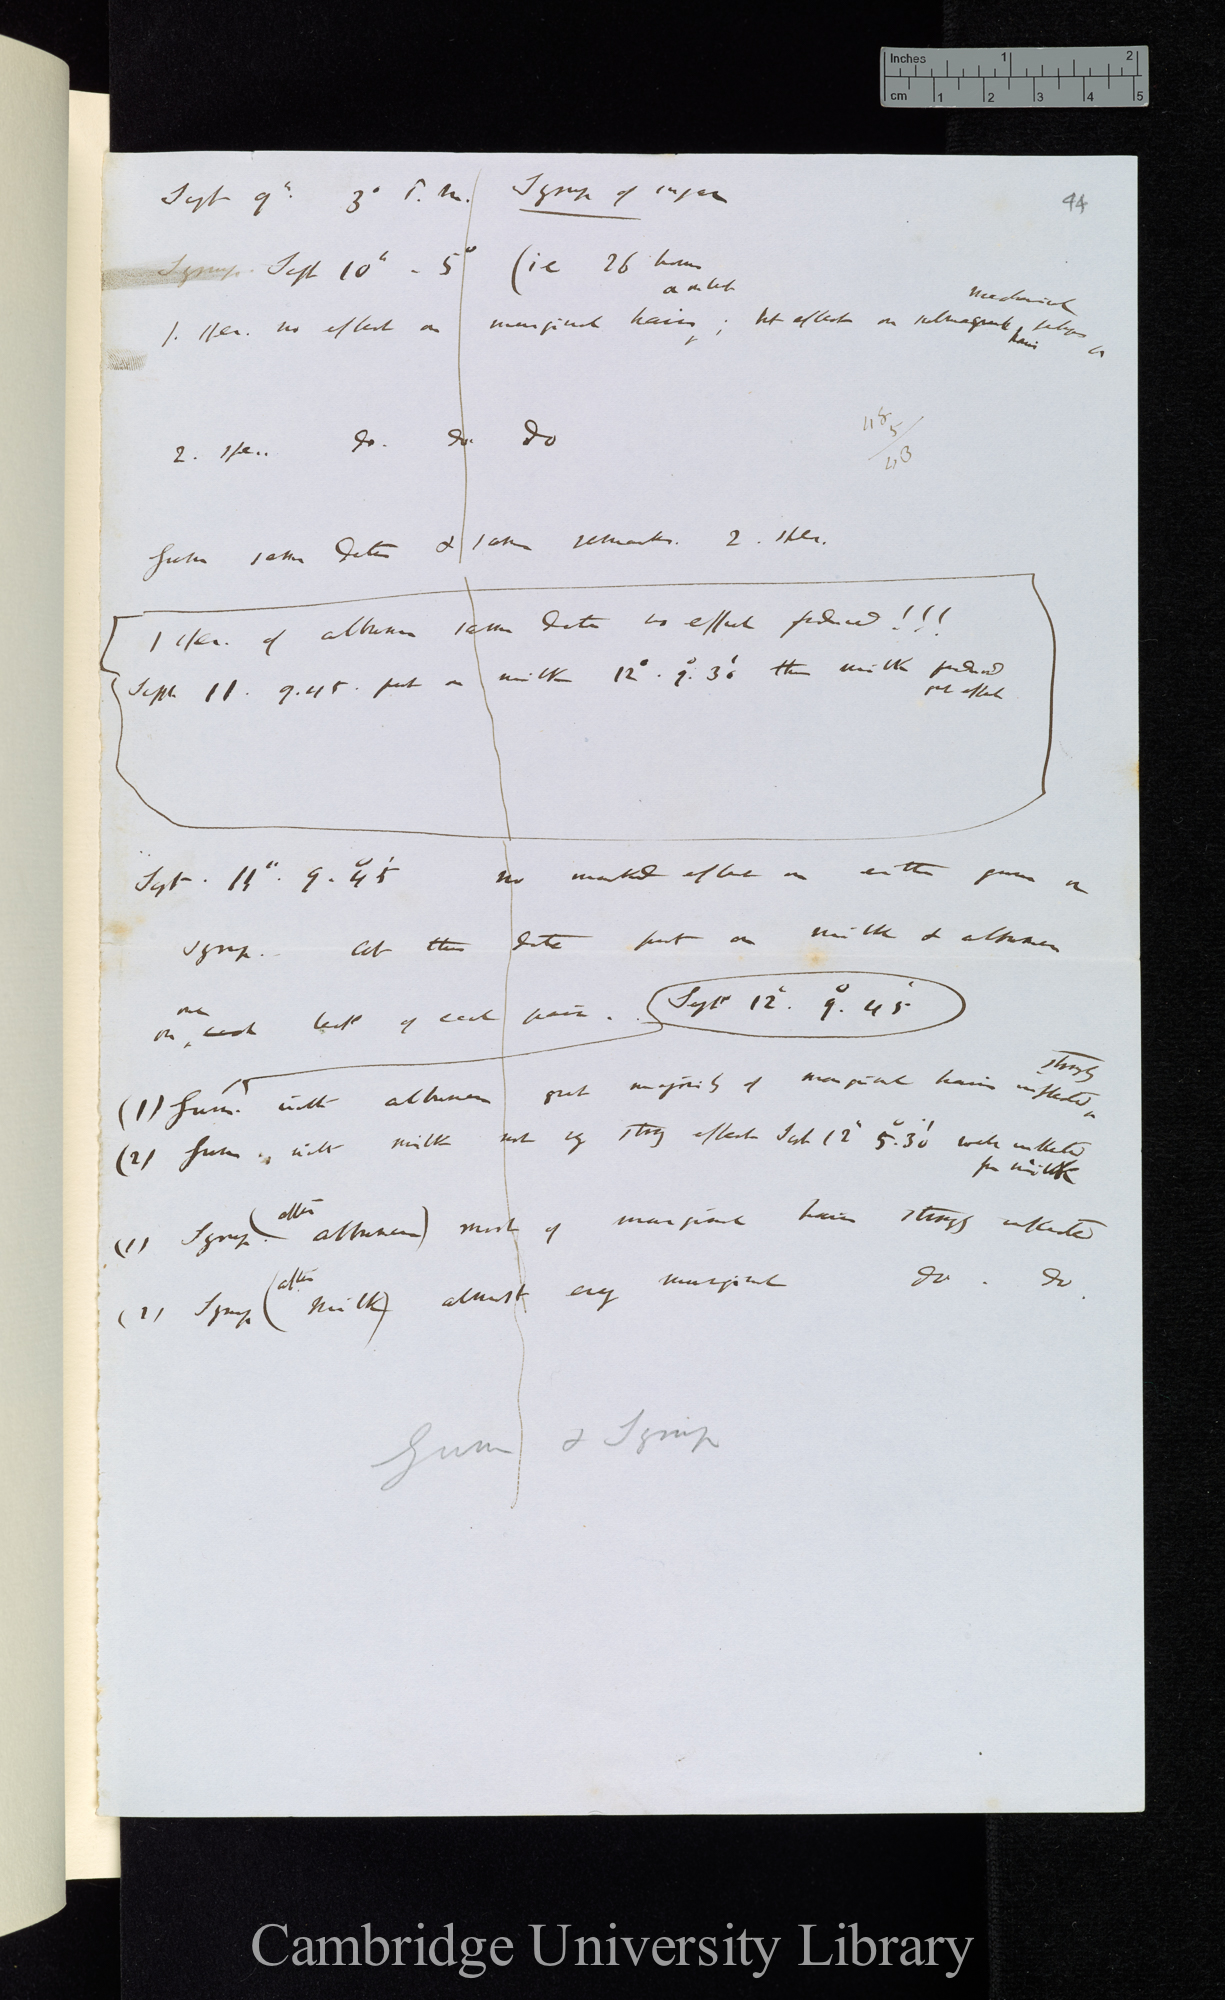 Inches 1 2
cm 1 2 3 4 5
44
Sept 9th. 3° P. M. Syrup of sugar
Syrup. Sept 10th - 5° (ie 26 hours
1. spec. no effect on marginal hairs; but effect on submarginal hairs mechanical
2. spec. do. do. do
Gum same dates & same remarks. 2. spec.
1 spec. of albumen same date no effect produced!!!
Septr 11. 9.45. put on milk 12th. 9°. 30' the milk produced
gt effect
Sept. 11th. 9°. 45' no marked effect on either gum or
syrup. At this date put on milk & albumen
on one leaf of each pair. Sept 12th. 9°. 45'
(1) Gum. with albumen great majority of marginal hairs strongly inflected
(2) Gum, with milk not by strong effect Sept 12th 5°.30' well inflected
from milk
(1) Syrup (after albumen) most of marginal hairs strongly inflected
(2) Syrup (after milk) almost every marginal do. do.
Gum & Syrup
Cambridge University Library